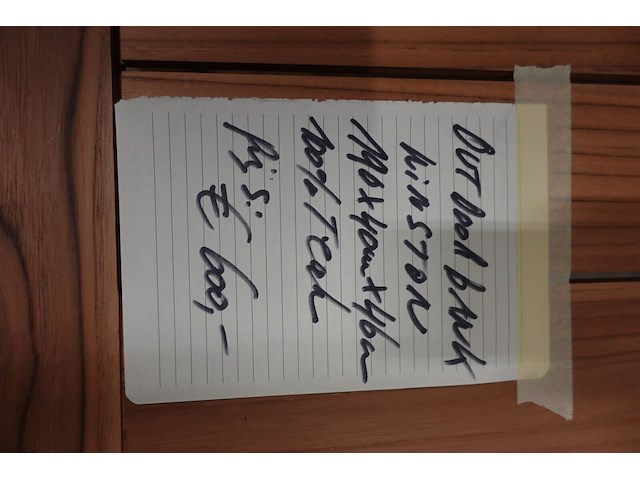 OUTdoor bank
kinston
190x40cmx46cm
100% Teak
prijs:
€ 600,-